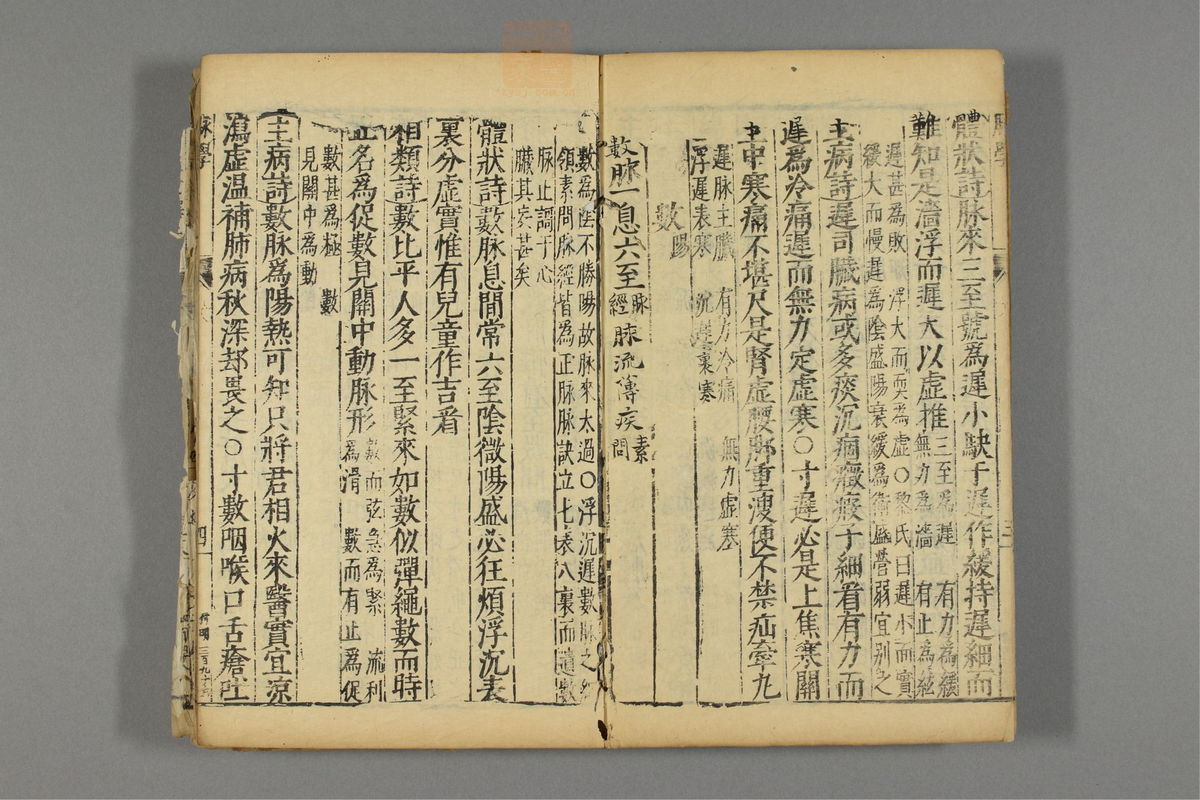 體狀詩脉來三至號爲遲小駃于遲作緩持遲細而
難知是濇浮而遲大以虛推三至爲遲有力爲緩無力爲濇有止爲結
遲甚爲敗浮大而耎為虛〇黎氏曰遲小而實
緩大而慢遲爲陰盛陽衰緩爲衛盛營弱宜別之
主病詩遲司臟病或多痰沉痼癥瘕仔細看有力而
遲爲冷痛遲而無力定虛寒〇寸遲必是上焦寒關
主中寒痛不堪尺是腎虛腰脚重溲便不禁疝牽丸
遲脉主臟有力冷痛無力虛寒
浮遲表寒沉遲裏寒
數陽
數脉一息六至脉經脉流薄疾素問
數爲陰不勝陽故脉來太過〇浮沉遲數脉之綱
領素問脉經皆為正脉脉訣立七表八裏而遺數
脉止謌于心
臟其妄甚矣
體狀詩數脉息間常六至陰微陽盛必狂煩浮沉表
裏分虛實惟有兒童作吉看
相類詩數比平人多一至緊來如數似彈繩數而時
止名為促數見關中動脉形數而弦急爲緊流利爲滑數而有止爲促
數甚爲極數
見關中為動
主病詩數脉爲陽熱可知只將君相火來醫實宜涼
瀉虛温補肺病秋深却畏之〇寸數咽喉口舌瘡吐
脉學
四
三